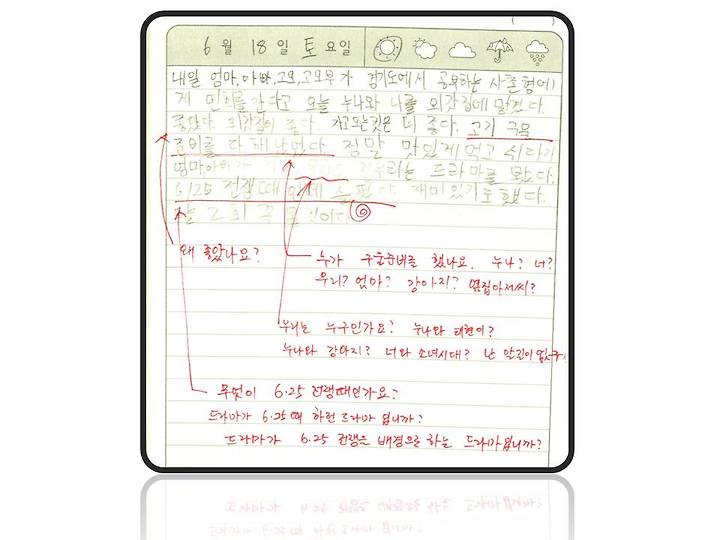 6월 18일 토요일
내일 엄마,아빠,고모,고모부가 경기도에서 공부하는 사촌형에
게 면회를 간다고 오늘 누나와 나를 외갓집에 맡겼다.
좋았다. 외갓집이 좋다. 더 좋다. 고기 구울
준비를 다 해 놨었다. 정말 맛있게 먹고 쉬다가
라는 드라마를 봤다.
6/25 전쟁때 재미있기도 했다.
2회 꼭 볼 것이다.
왜 좋았나요?
누가 구울준비를 했나요. 누나? 너?
우리? 엄마? 강아지? 옆집아저씨?
우리는 누구인가요? 누나와
누나와 강아지? 너와 소녀시대? 난
무엇이 6.25 전쟁때인가요?
드라마가 6.25때 하던 드라마 입니까?
드라마가 6.25 전쟁을 배경으로 하는 드라마입니까?